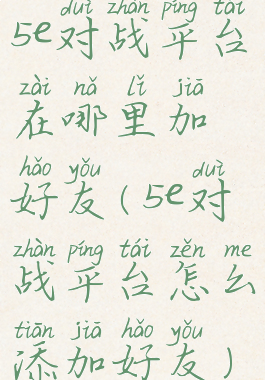 duì zhàn píng tái
5e对战平台
zài nǎ lǐ jiā
在哪里加
hǎo yǒu duì
好友(5e对
zhàn píng tái zěn me
战平台怎么
tiān jiā hǎo yǒu
添加好友)